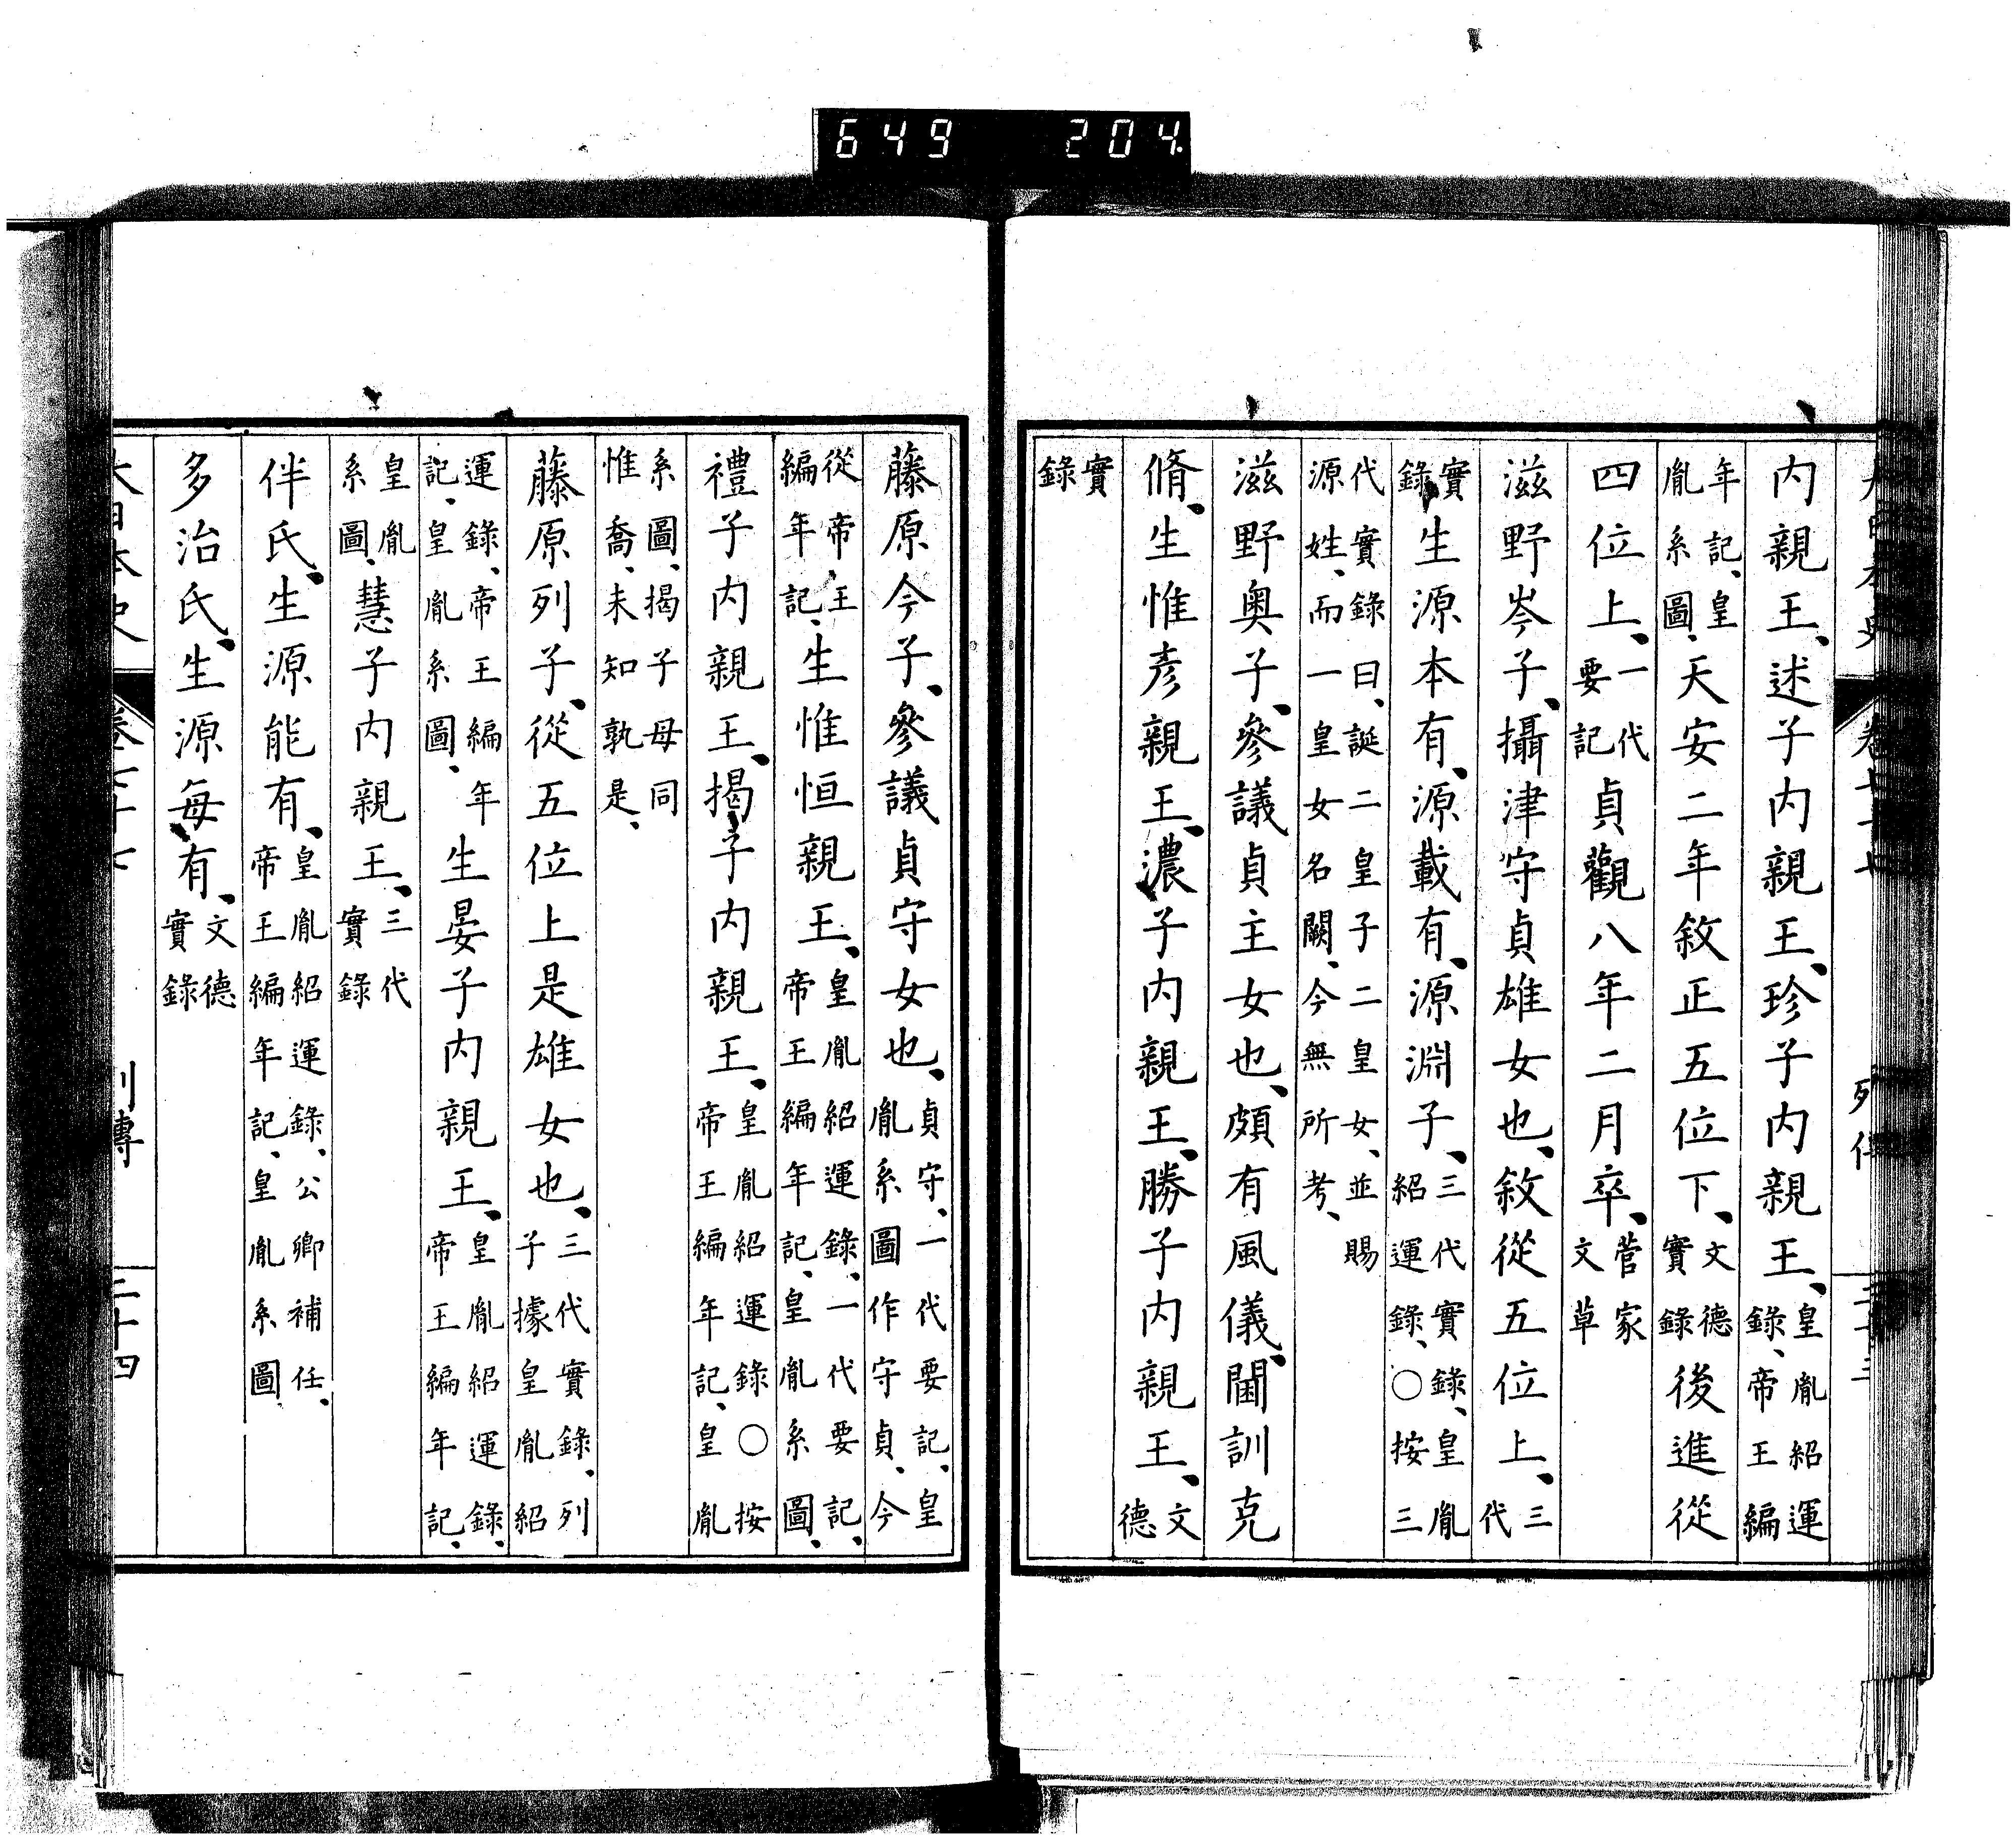 大日本史 卷七十七 列傳
内親王、述子内親王、珍子内親王、皇胤紹運錄、帝王編
年記、皇胤系圖、天安二年敘正五位下、文德實錄後進從
四位上、一代要記貞觀八年二月卒、菅家文草
滋野岑子、攝津守貞雄女也、敘從五位上、三代
實錄生源本有、源載有、源淵子、三代實錄、皇胤紹運錄、○按三
代實錄曰、誕二皇子二皇女、並賜源姓、而一皇女名闕、今無所考、
滋野奧子、參議貞主女也、頗有風儀、閫訓克
脩、生惟彥親王、濃子内親王、勝子内親王、文德
實錄
藤原今子、參議貞守女也、貞守、一代要記、皇胤系圖作守貞、今
從帝王編年記、生惟恒親王、皇胤紹運錄、一代要記、帝王編年記、皇胤系圖、
禮子内親王、揭子内親王、皇胤紹運錄○按帝王編年記、皇胤
系圖、揭子母同惟喬、未知孰是、
藤原列子、從五位上是雄女也、三代實錄、列子據皇胤紹
運錄、帝王編年記、皇胤系圖、生晏子内親王、皇胤紹運錄、帝王編年記、
皇胤系圖、慧子内親王、三代實錄
伴氏、生源能有、皇胤紹運錄、公卿補任、帝王編年記、皇胤系圖
多治氏、生源每有、文德實錄
大日本史 卷七十七 列傳 二十四
649 204.